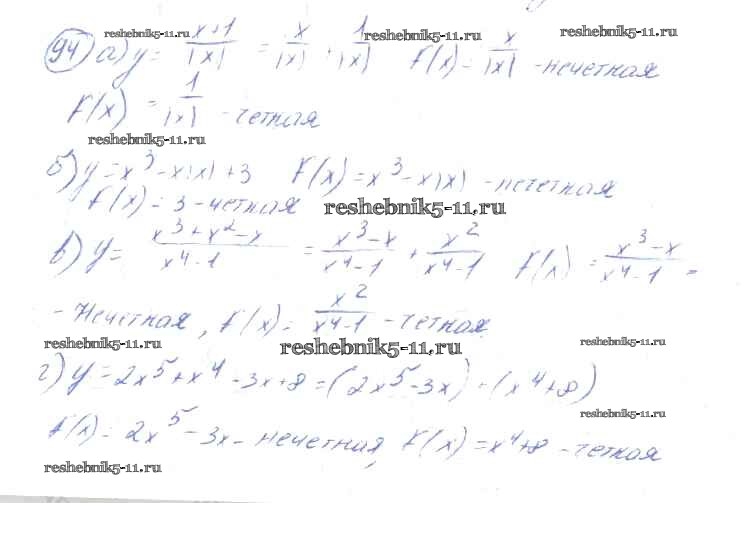 94) а) y = x+1/|x| = x/|x| + 1/|x| f(x) = x/|x| - нечетная
f(x) = 1/|x| - четная
б) y = x³ - x|x| + 3 f(x) = x³ - x|x| - нечетная
f(x) = 3 - четная
в) y = x³+x²-x/x⁴-1 = x³-x/x⁴-1 + x²/x⁴-1 f(x) = x³-x/x⁴-1 -
- нечетная, f(x) = x²/x⁴-1 - четная
г) y = 2x⁵+x⁴-3x+8 = (2x⁵-3x) + (x⁴+8)
f(x) = 2x⁵-3x - нечетная, f(x) = x⁴+8 - четная
reshebnik5-11.ru
reshebnik5-11.ru
reshebnik5-11.ru
reshebnik5-11.ru
reshebnik5-11.ru
reshebnik5-11.ru
reshebnik5-11.ru
reshebnik5-11.ru
reshebnik5-11.ru
reshebnik5-11.ru